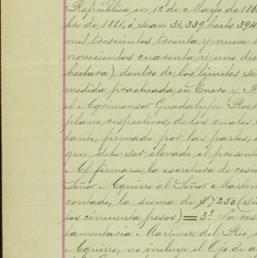 República en 12 de Mayo de 185
bre de 1881, ó sean 31,339 hects 394
mil, trescientos, treinta y nueve
novecientos cuarenta y uno die
hectara), dentro de los límites se
medida practicada en Enero y F
el Agrimensor Guadalupe
plano, respectivos, de los cuales
tante, firmado por las partes,
que debe ser elevado el present
Al firmarse la escritura de cesió
Señor Aguirre al Señor Martin
contado, la suma de $7250 (sie
tos cincuenta pesos) = 3ª La ces
tamentaria Martinez del Rio,
Aguirre, no incluye el Ojo de a